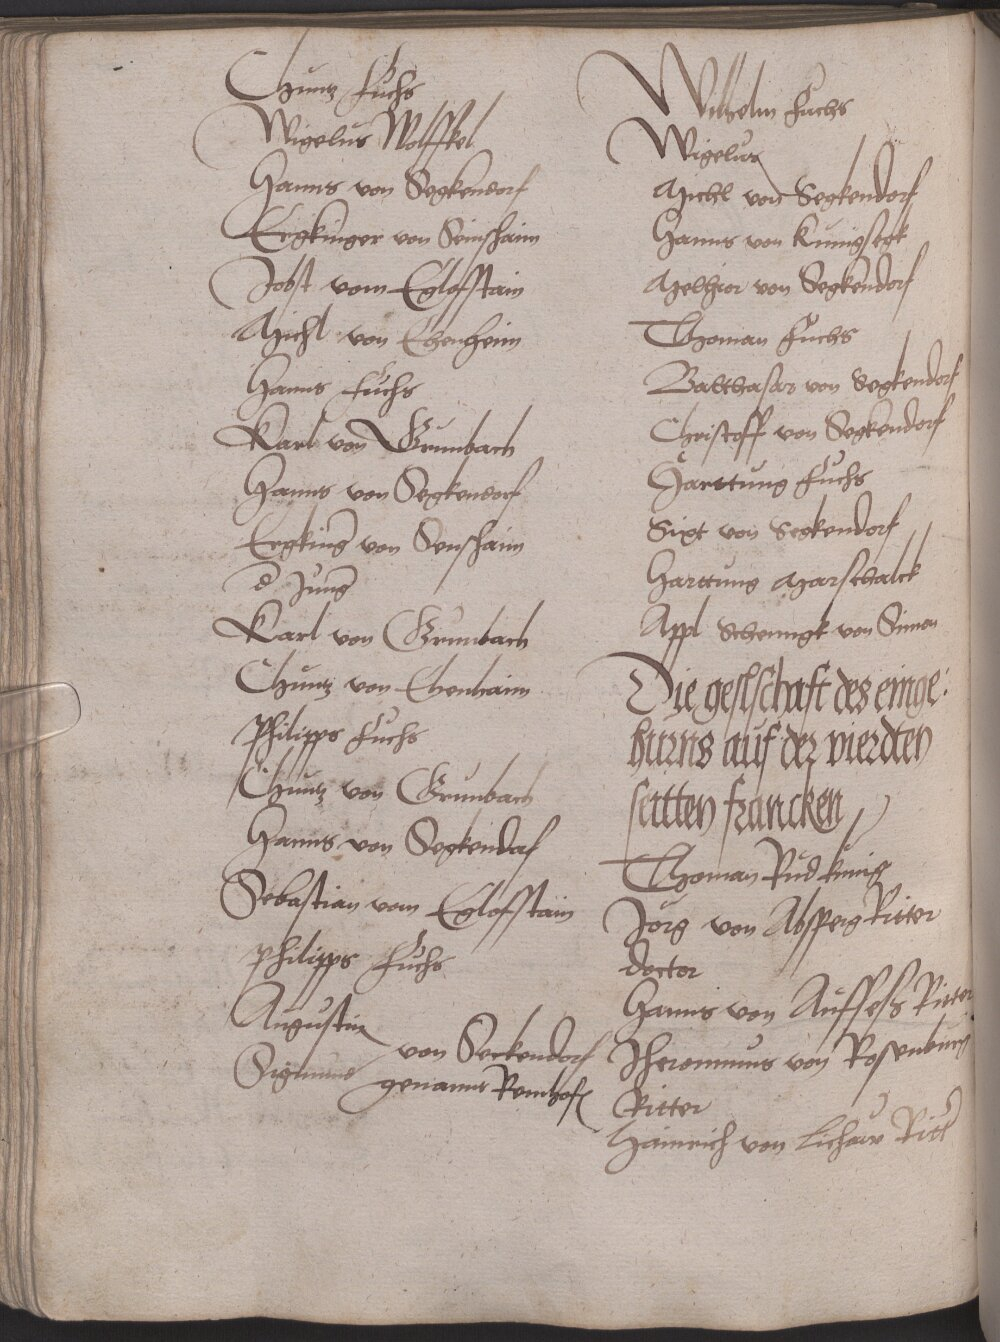 Chuntz Fuchs
Wigelus Wolffkel
Hanns von Segkendorf
Ergkinger von Seinshaim
Jobst vom Eglofstain
Michl von Ehenheim
Hanns Fuchs
Karl von Grumbach
Hanns von Segkendorf
Ergking von Senshaim
d Jung
Karl von Grumbach
Chuntz von Ehenhaim
Philipps Fuchs
Chuntz von Grumbach
Hanns von Segkendorf
Sebastian vom Eglofstain
Philipps Fuchs
Augustin
Sigmund von Seckendorf
genannt Renhofs
Wilhelm Fuchs
Wigelus
Michl von Segkendorf
Hanns von Kunigsegk
Melchior von Segkendorf
Thoman Fuchs
Balthasar von Segkendorf
Christoff von Segkendorf
Harttung Fuchs
Sixt von Segkendorf
Harttung Marschalck
Appl von
Die geslschaft des einge:
hurns auf der vierdten
seitten francken
Thoman Rud kunig
Jorg von Absperg Ritter
doctor
Hanns von Aufses Ritter
Jheronimus von Rosenburg
Ritter
Hainrich von Lichaw Ritt